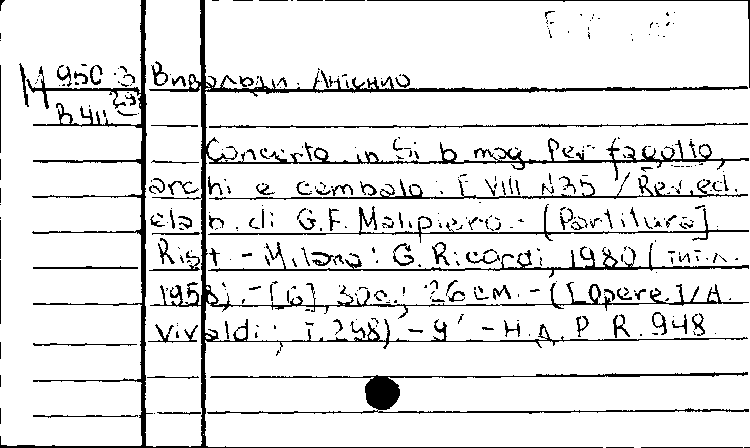 M 950-3 Вивальди. Антонио
B 411 298
Concerto in Si b mag. Per fagotto,
archi e cembalo. F VIII N35 / Rev. ed.
elab. di G.F. Malipiero. - [Partitura]
Rist - Milano: G. Ricordi, 1980 (тит.л.
1958). - [6], 30c.; 26 см. - ([Opere]/A.
Vivaldi; т. 298). - 9' - Н.Д. P. R. 948